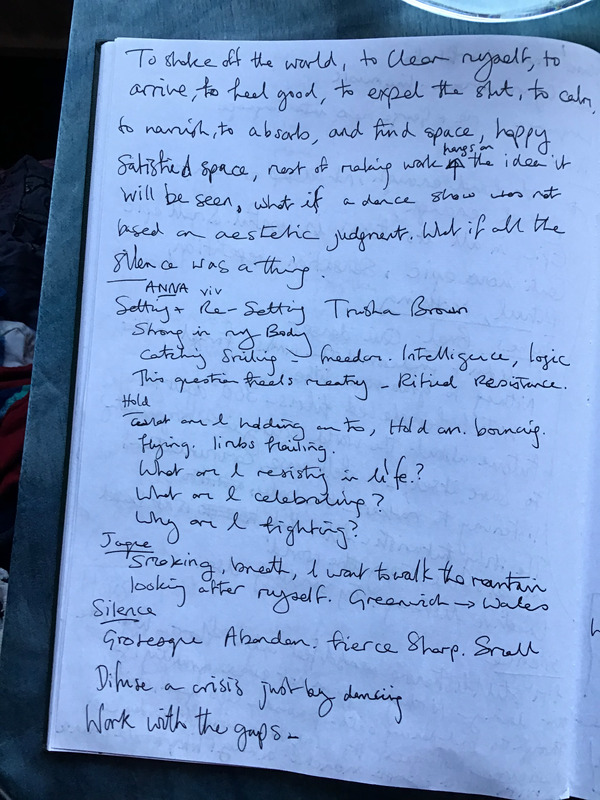 To shake off the world, to clear myself, to
arrive, to feel good, to expel the shit, to calm,
to narrish, to absorb, and find space, happy
hangs on
Satisfied space, most of making work the idea it
will be seen, what if a dance show was not
based on aestetic judgment. What if all the
silence was a thing.
ANNA viv
Setting + Re-Setting Trusha Brown
Strong in my Body
Catching - freedom. Intelligence, logic
This question feels meaty - Resistance.
Hold
what am I holding on to, Hold on. bouncing.
flying. limbs flailing.
What am I resisting in life?
What am I celebrating?
Why am I fighting?
Smoking, breath, I want to walk the mountain
looking after myself. Greenwich → Wales
Silence
Grotesque Abandon. fierce Sharp. Small
Difuse a crisis just by dancing
Work with the gaps -